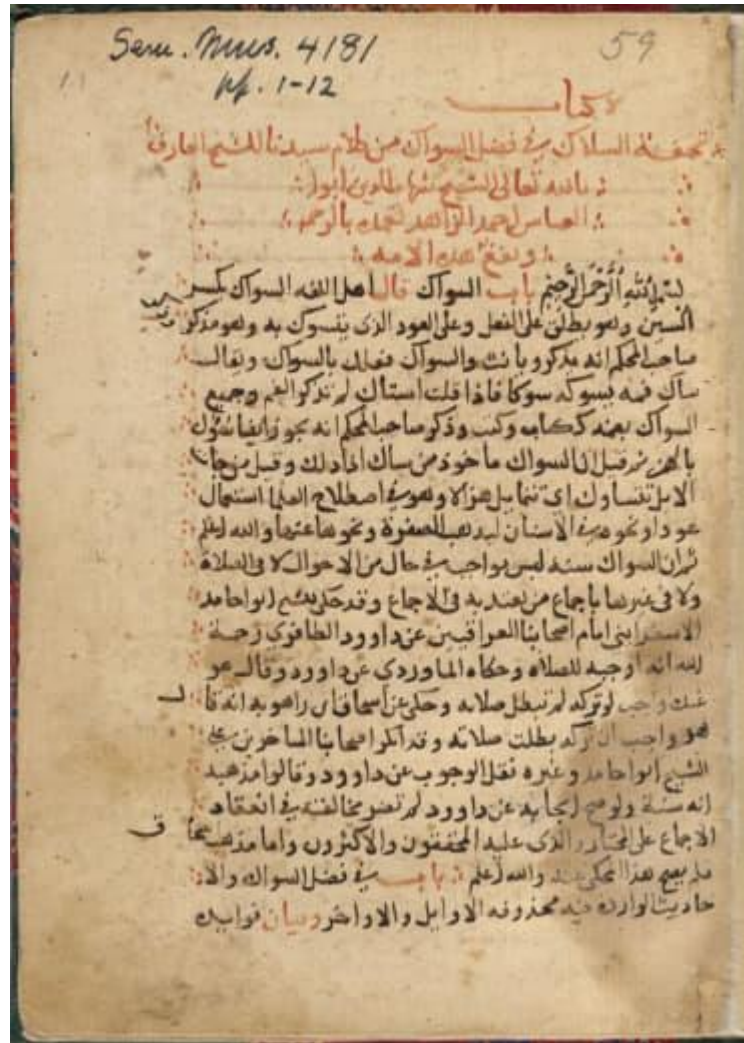 Sem. Mus. 4181
59
pp. 1-12
كتاب
تحفة السلاك في فضل السواك من كلام سيدنا الشيخ العارف
بالله تعالى الشيخ شهاب الدين ابو
العباس احمد الزاهد تغمده بالرحمه
ونفع هذه الامه
بسم الله الرحمن الرحيم باب السواك قال اهل اللغه السواك بكسر
السين وهو يطلق على الفعل وعلى العود الذى يتسوك به وهو مذكر
صاحب المحكم انه مذكر ويانث والسواك فعلك بالسواك ويقال
ساك فمه يسوكه سوكا فاذا قلت استاك لم تذكر الفم وجميع
السواك بضمه ككتاب وكتب وذكر صاحب المحكم انه يجوز ايضا سُؤُك
بالهمز ثم قيل ان السواك ماخوذ من ساك اذا دلك وقيل من جات
الابل تتساوك اي تتمايل هزالا وهو في اصطلاح العلما استعمال
عود او نحوه في الاسنان ليذهب الصفرة ونحوها عنها والله اعلم
ثم ان السواك سنه ليس بواجب في حال من الاحوال لا في الصلاة
ولا في غيرها باجماع من يعتد به في الاجماع وقد حكى الشيخ ابو احامد
الاسفرايني امام اصحابنا العراقيين عن داوود الظاهري رحمة
الله انه اوجبه للصلاه وحكاه الماوردي عن داوود وقال هو
عنده واجب لو تركه لم تبطل صلاته وحكي عن اسحاق ابن راهويه انه قال
هو واجب ان تركه بطلت صلاته وقد انكر اصحابنا المتاخرين على
الشيخ ابو احامد وغيره نقل الوجوب عن داوود وقالوا مذهبه
انه سنة ولو صح ايجابه عن داوود لم تضر مخالفته في انعقاد
الاجماع على المختار الذى عليه المحققون والاكثرون واما مذهب اسحاق
فلم يصح هذا المحكى عنه والله اعلم باب في فضل السواك والا
حاديث الوارده فيه محذوفه الاوايل والاواخر وبيان فوايده